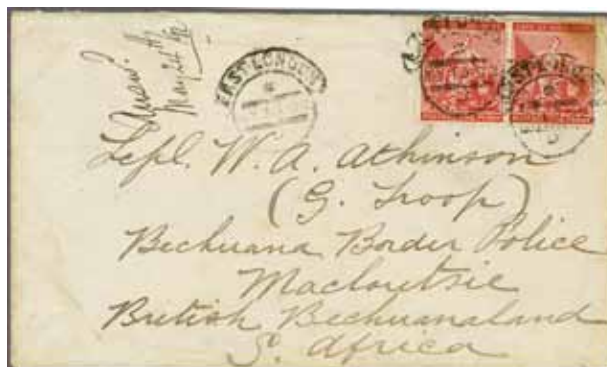 Answd
May 24th/92
EAST LONDON
EAST LONDON
EAST LONDON
Lcpl. W. A. Athinson
(G. Troop)
Bechuana Border Police
Macloutsie
British Bechuanaland
S. Africa